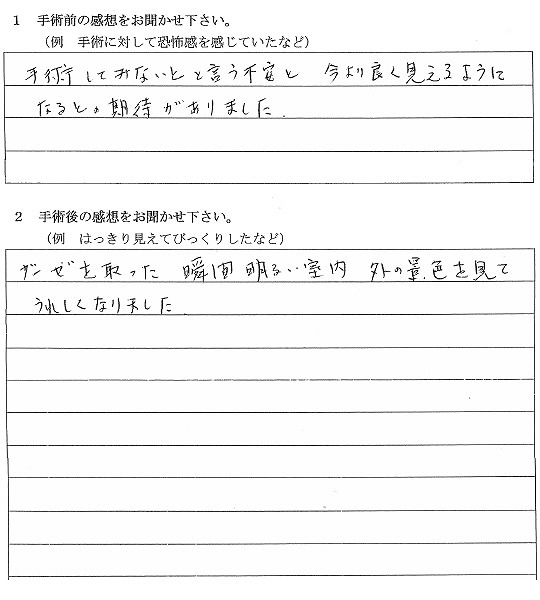 1 手術前の感想をお聞かせ下さい。
（例 手術に対して恐怖感を感じていたなど）
手術してみないとと言う不安と 今より良く見えるように
なるとの期待がありました.
2 手術後の感想をお聞かせ下さい。
（例 はっきり見えてびっくりしたなど）
ガーゼを取った 瞬間 明るい室内 外の景色を見て
うれしくなりました